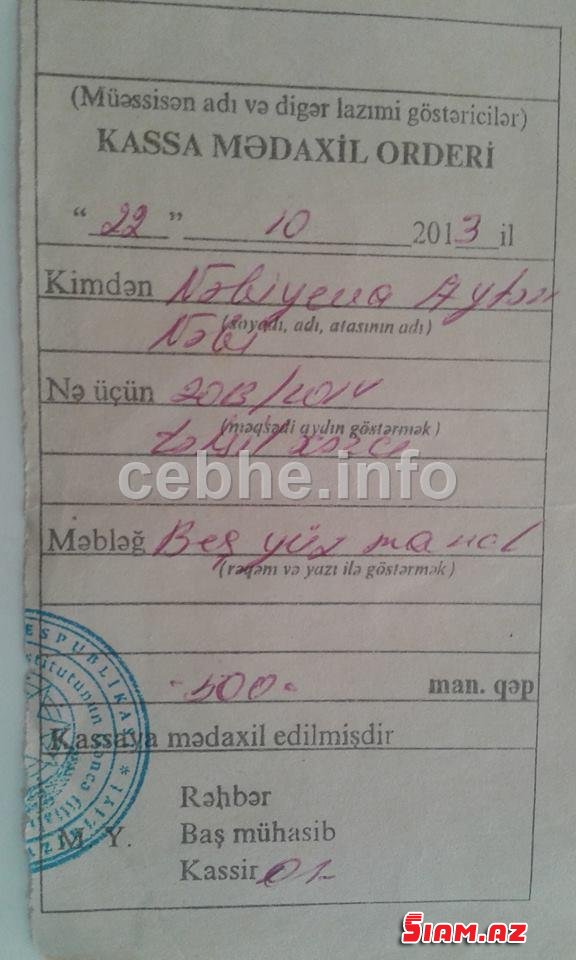 (Müəssisən adı və digər lazımi göstəricilər)
KASSA MƏDAXİL ORDERİ
“ 22 ” 10 2013 il
Kimdən Nəbiyeva Aytən
(soyadı, adı, atasının adı)
Nəbi
Nə üçün 2013/2014
(məqsədi aydın göstərmək)
təhsil
cebhe.info
Məbləğ Beş yüz manat
(rəqəm və yazı ilə göstərmək)
RESPUBLİKASI
institutunun Gəncə filialı
-500- man. qəp
Kassaya mədaxil edilmişdir
Rəhbər
M. Y. Baş mühasib
Kassir
SIAM.AZ